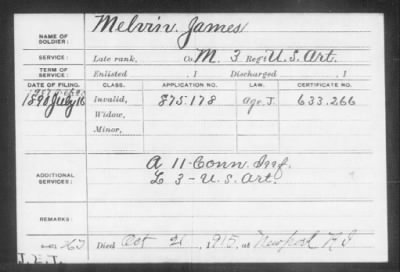 NAME OF SOLDIER: Melvin. James
SERVICE: Late rank, Co. M. 3 Reg't U.S. Art.
TERM OF SERVICE: Enlisted , 1 Discharged , 1
DATE OF FILING. CLASS. APPLICATION NO. LAW. CERTIFICATE NO.
1890 July 16 Invalid, 875.178 Age. J. 633.266
Widow,
Minor,
ADDITIONAL SERVICES: A 11 Conn. Inf.
L 3 - U.S. Art.
REMARKS:
Died Oct 21, 1915, at Newport R I
J.E.J.